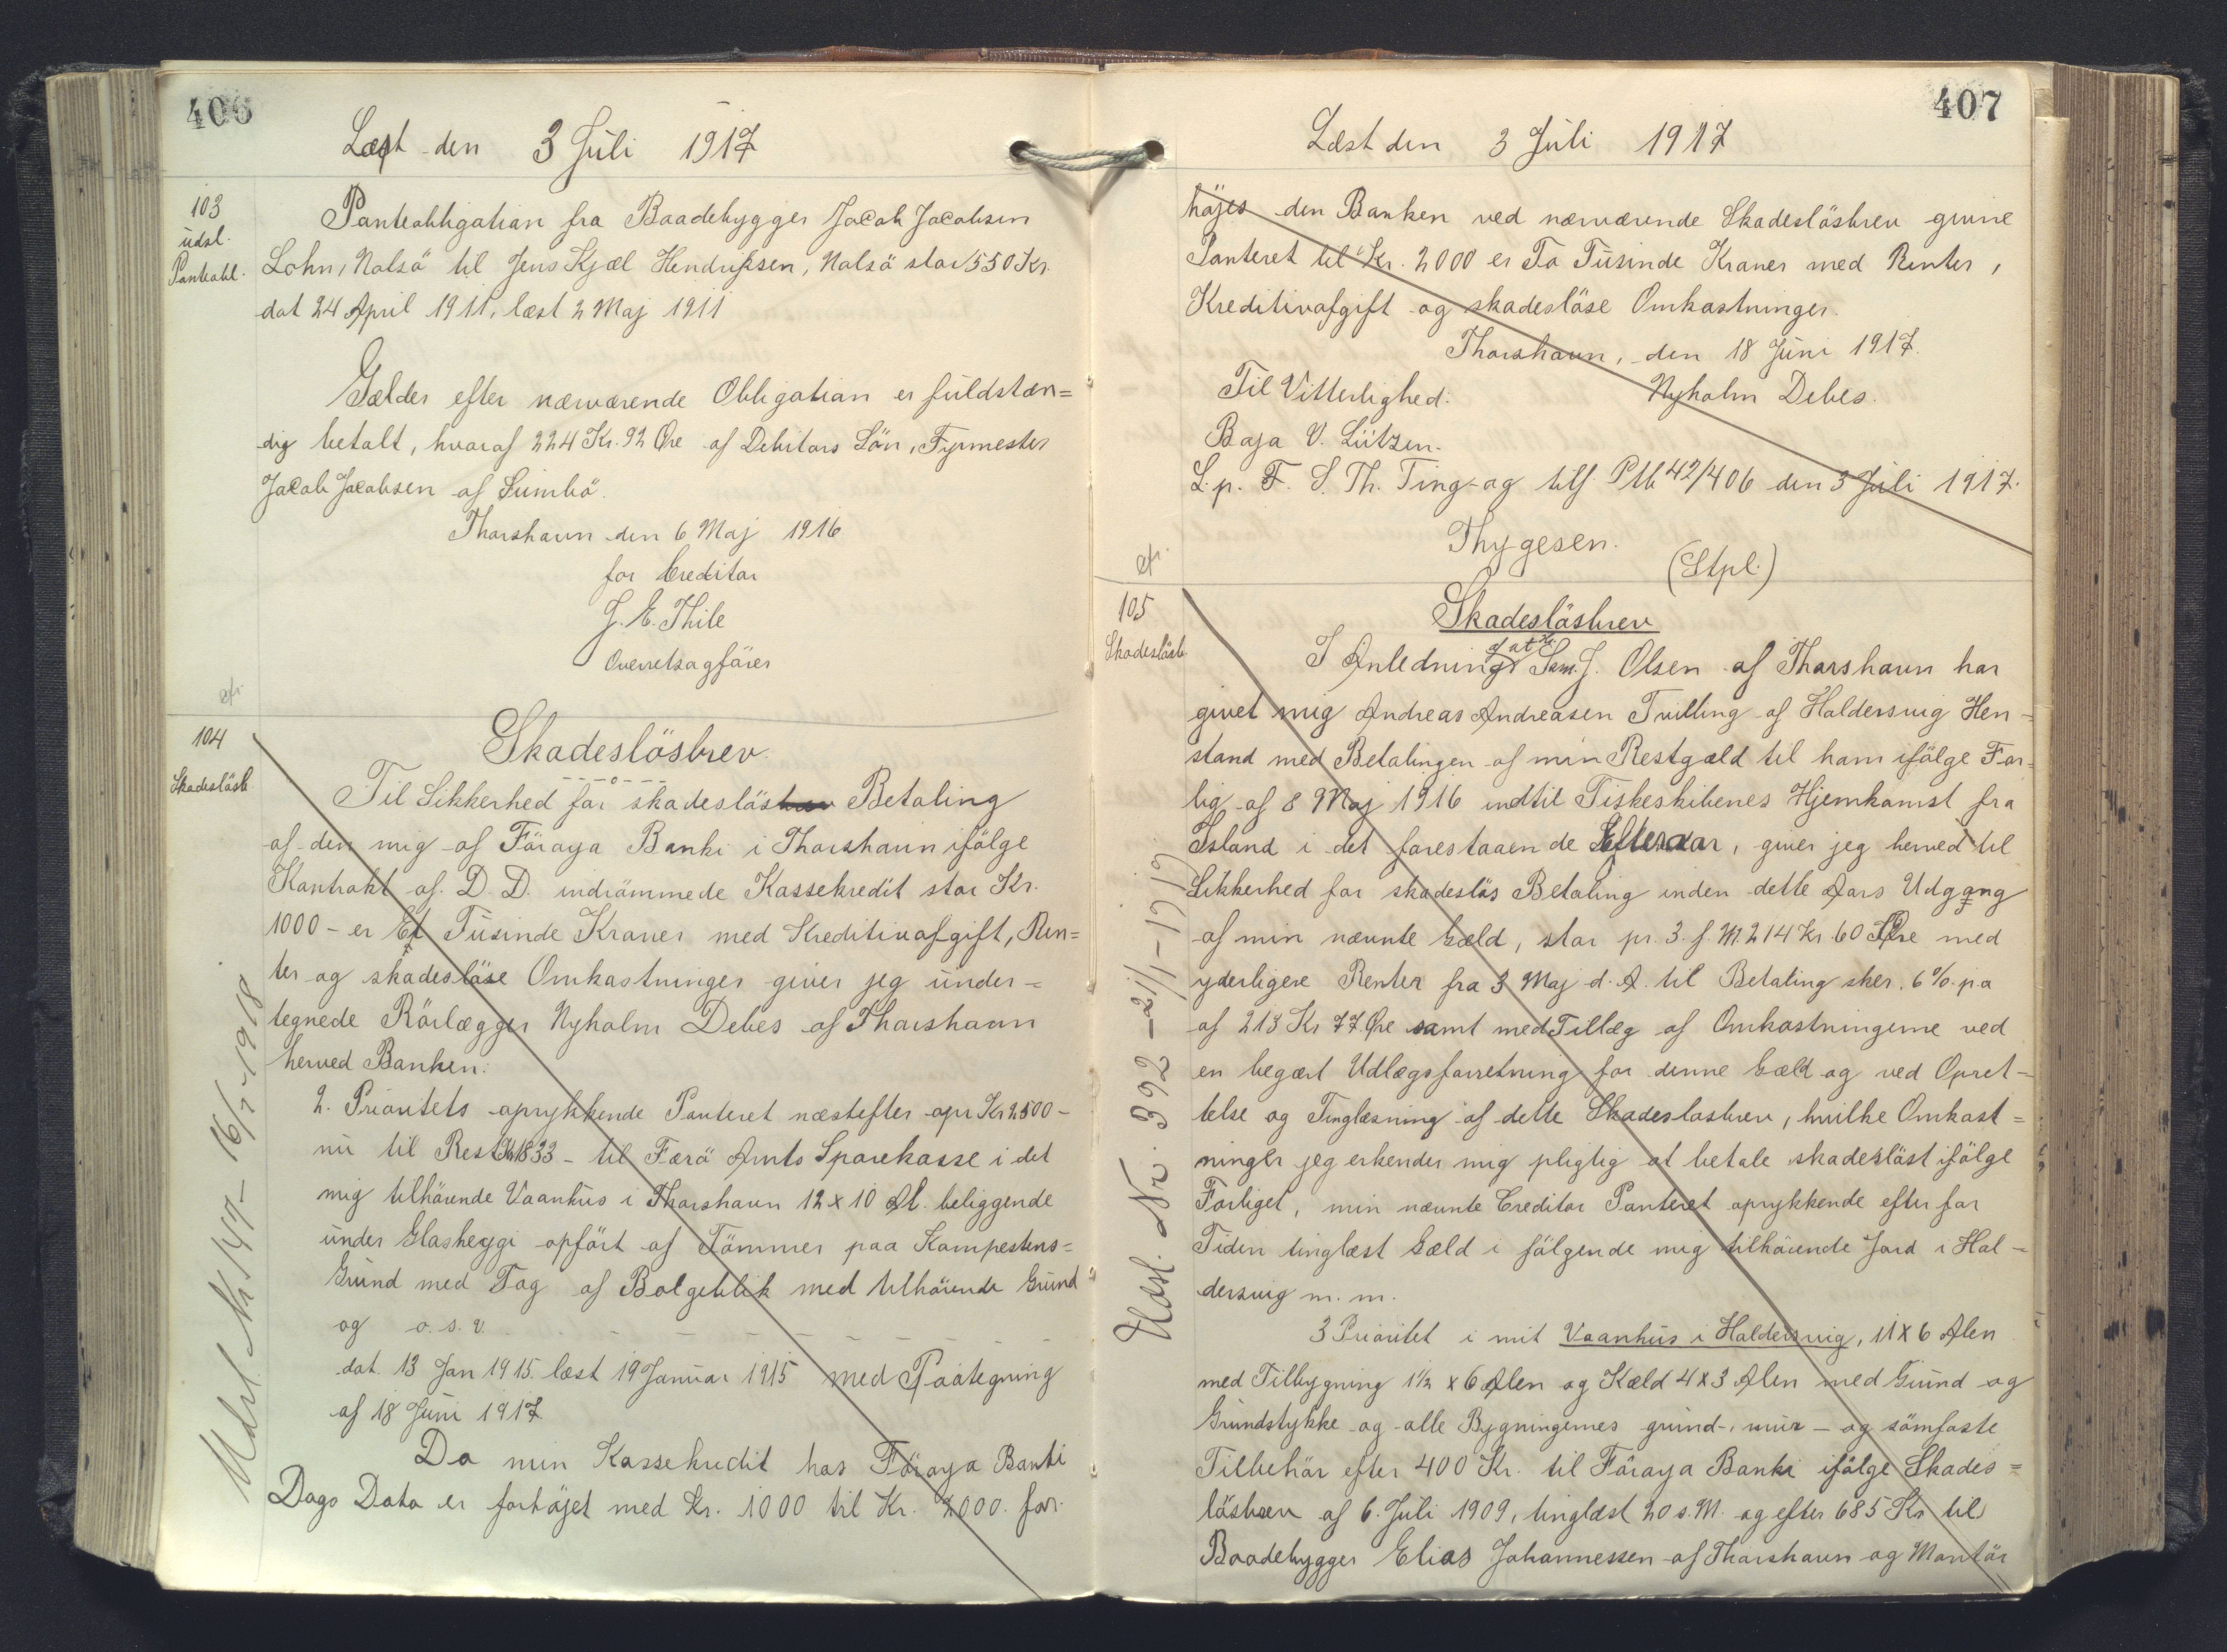 406
Læst den 3 Juli 1917
103
udsl.
Panteobl.
Panteobligation fra Baadebygger Jacob Jacobsen
Lohn, Nolsö til Jens Kjæl Hendriksen, Nolsö stor 550 Kr.
dat 24 April 1911, læst 2 Maj 1911
Gælder efter nærværende Obligation er fuldstæn=
dig betalt, hvoraf 224 Kr. 92 Öre af Debitors Sön, Fyrmester
Jacob Jacobsen af Sumbö.
Thorshavn den 6 Maj 1916
for Creditor
J. E. Thile
Overretsagförer
cfr.
104
Skadeslösb.
Skadeslösbrev.
Til Sikkerhed for skadeslös Betaling
af den mig af Föroya Banki i Thorshavn ifölge
Kontrakt af. D. D. indrömmede Kassekredit stor Kr.
1000 - er Et Tusinde Kroner med Kreditivafgift, Ren=
ter og skadeslöse Omkostninger giver jeg under=
tegnede Rörlægger Nyholm Debes af Thorshavn
herved Banken:
2. Prioritets oprykkende Panteret næstefter opr Kr 2500 -
nu til Rest Kr 1833 - til Færö Amts Sparekasse i det
mig tilhörende Vaanhus i Thorshavn 12 x 10 Al. beliggende
under Glasheyggi opfört af Tömmer paa Kampestens=
Grund med Tag af Bölgeblik med tilhörende Grund
og o. s. v.
dat. 13 Jan 1915. læst 19 Januar 1915 med Paategning
af 18 Juni 1917
Da min Kassekredit hos Föroya Banki
Dags Dato er forhöjet med Kr. 1000 til Kr. 2000. for-
Udsl. Nr 147 - 16/7 - 1918
407
Læst den 3 Juli 1917
höjes den Banken ved nærværende Skadeslösbrev givne
Panteret til Kr. 2000 er To Tusinde Kroner med Renter,
Kreditivafgift og skadeslöse Omkostninger.
Thorshavn, den 18 Juni 1917.
Til Vitterlighed: Nyholm Debes.
Baja V. Lützen.
L. p. F. S. Th. Ting og tilf. Ptb 42/406 den 3 Juli 1917.
Thygesen.
(Stpl.)
cfr.
105
Skadeslösb.
Skadeslösbrev
I Anledning af at Hr. Sam. J. Olsen af Thorshavn har
givet mig Andreas Andreasen Tvilling af Haldersvig Hen-
stand med Betalingen af min Restgæld til ham ifölge For-
lig af 8 Maj 1916 indtil Fiskeskibenes Hjemkomst fra
Island i det forestaaende Efteraar, giver jeg herved til
Sikkerhed for skadeslös Betaling inden dette Aars Udgang
af min nævnte Gæld, stor pr. 3. f. M. 214 Kr. 60 Öre med
yderligere Renter fra 3 Maj d. A. til Betaling sker. 6 % p.a
af 213 Kr 77 Öre samt med Tillæg af Omkostningerne ved
en begært Udlægsforretning for denne Gæld og ved Opret-
telse og Tinglæsning af dette Skadeslosbrev, hvilke Omkost=
ninger jeg erkender mig pligtig at betale skadeslöst ifölge
Forliget, min nævnte Creditor Panteret oprykkende efter for
Tiden tinglæst Gæld i fölgende mig tilhörende Jord i Hal-
dersvig m. m.
3 Prioritet i mit Vaanhus i Haldersvig, 11 X 6 Alen
med Tilbygning 1½ x 6 Alen og Kæld 4 X 3 Alen med Grund og
Grundstykke og alle Bygningernes grund-, mur- og sömfaste
Tilbehör efter 400 Kr. til Föroya Banki ifölge Skades=
lösbrev af 6. Juli 1909, tinglæst 20 s. M. og efter 685 Kr til
Baadebygger Elias Johannessen af Thorshavn og Montör
Udsl. Nr. 392 - 21/1 - 1919